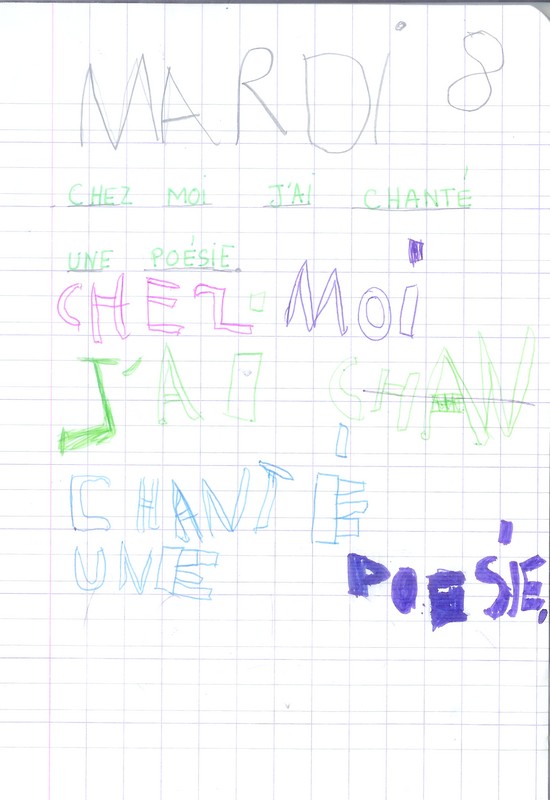 MARDI 8
CHEZ MOI J'AI CHANTÉ
UNE POÉSIE.
CHEZ MOI
J'AI CHAN
CHANTÉ
UNE POESIE.